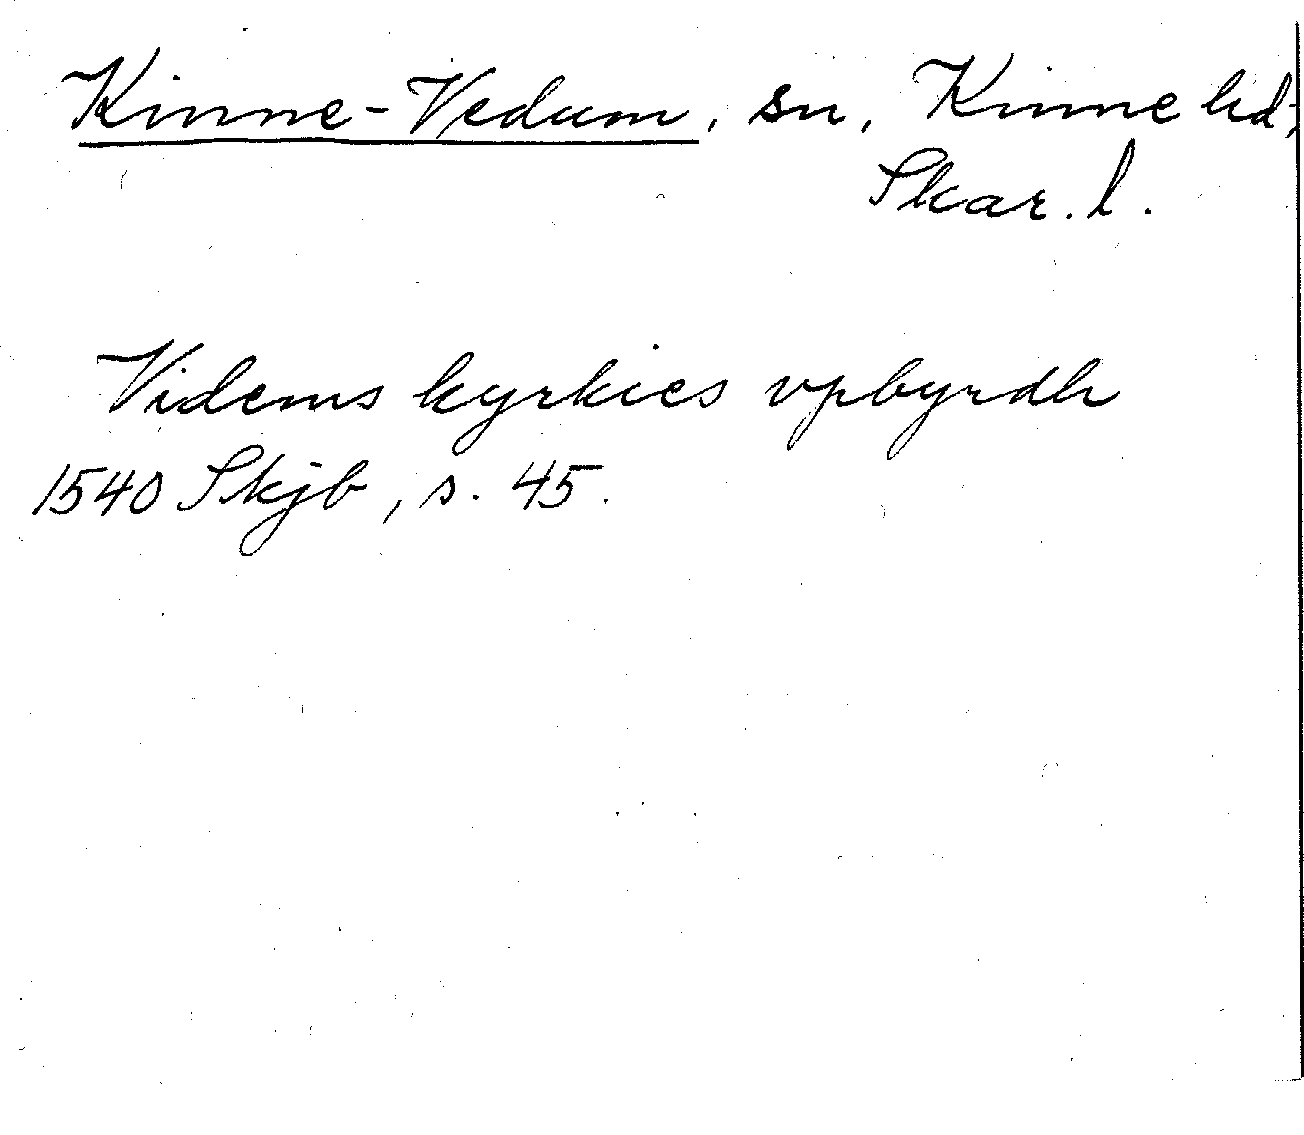 Kinne-Vedum, sn, Kinne hd,
Skar. l.
Videms kyrkies vpbyrdh
1540 Skjb, s. 45.